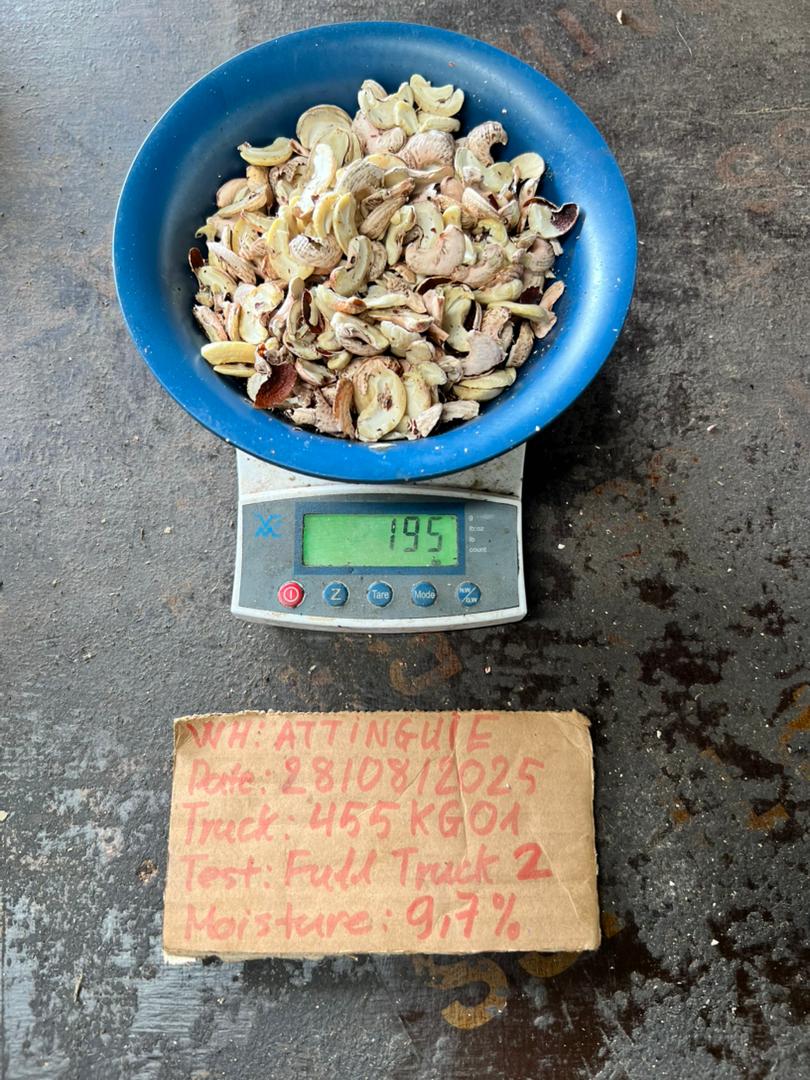 195
g
lb:oz
lb
count
Z
Tare
Mode
N.W/G.W
WH: ATTINGUIE
Date: 28/08/2025
Truck: 455KG01
Test: Full Truck 2
Moisture: 9,7%